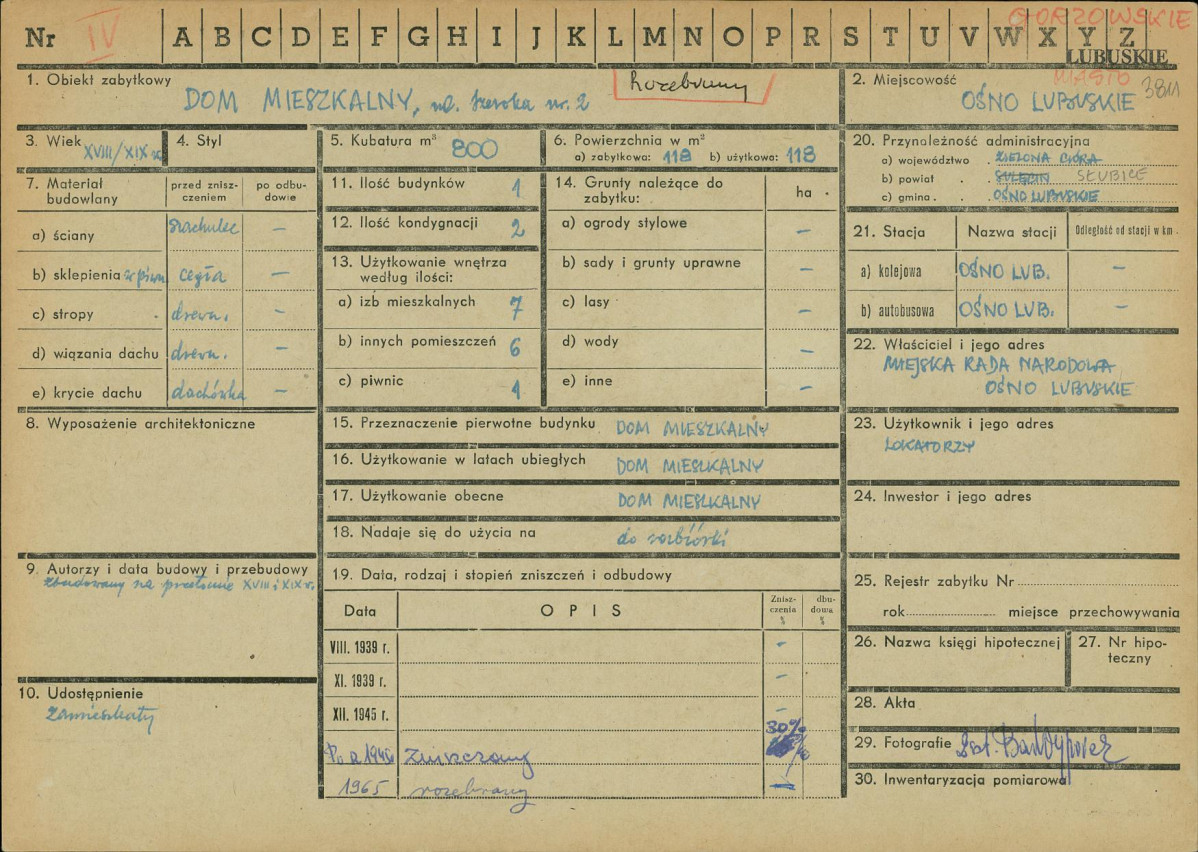 GORZOWSKIE
Nr IV A B C D E F G H I J K L M N O P R S T U V W X Y Z
LUBUSKIE
1. Obiekt zabytkowy
DOM MIESZKALNY, ul. Szeroka nr. 2
Rozebrany
2. Miejscowość
MIASTO
OŚNO LUBUSKIE
3811
3. Wiek
XVIII/XIX w.
4. Styl
5. Kubatura m³ 800
6. Powierzchnia w m²
a) zabytkowa: 118 b) użytkowa: 118
20. Przynależność administracyjna
a) województwo . ZIELONA GÓRA
b) powiat . . SULĘCIN SŁUBICE
c) gmina . . OŚNO LUBUSKIE
7. Materiał budowlany
przed zniszczeniem
po odbudowie
a) ściany szachulec –
b) sklepienia w piwn. cegła –
c) stropy . drewn. –
d) wiązania dachu drewn. –
e) krycie dachu dachówka –
11. Ilość budynków 1
12. Ilość kondygnacji 2
13. Użytkowanie wnętrza
według ilości:
a) izb mieszkalnych 7
b) innych pomieszczeń 6
c) piwnic 1
14. Grunty należące do
zabytku:
ha .
a) ogrody stylowe –
b) sady i grunty uprawne –
c) lasy –
d) wody –
e) inne –
21. Stacja Nazwa stacji Odległość od stacji w km .
a) kolejowa OŚNO LUB. –
b) autobusowa OŚNO LUB. –
22. Właściciel i jego adres
MIEJSKA RADA NARODOWA
OŚNO LUBUSKIE
8. Wyposażenie architektoniczne
15. Przeznaczenie pierwotne budynku DOM MIESZKALNY
16. Użytkowanie w latach ubiegłych DOM MIESZKALNY
17. Użytkowanie obecne DOM MIESZKALNY
18. Nadaje się do użycia na do rozbiórki
23. Użytkownik i jego adres
LOKATORZY
24. Inwestor i jego adres
9. Autorzy i data budowy i przebudowy
zbudowany na przełomie XVIII i XIX w.
19. Data, rodzaj i stopień zniszczeń i odbudowy
Data OPIS
Zniszczenia %
dbudowa %
VIII. 1939 r. –
XI. 1939 r. –
XII. 1945 r. –
30%
Po r. 1945 Zniszczony
1965 rozebrany –
10. Udostępnienie
zamieszkały
25. Rejestr zabytku Nr
rok miejsce przechowywania
26. Nazwa księgi hipotecznej
27. Nr hipoteczny
28. Akta
29. Fotografie
30. Inwentaryzacja pomiarowa